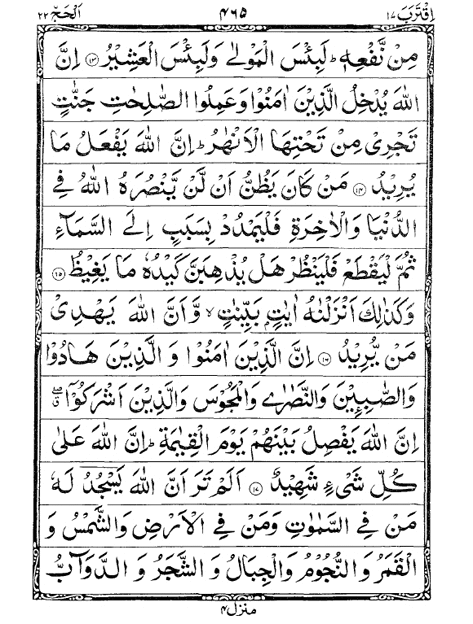 اِقْتَرَبَ ١٧ ٤٦٥ اَلْحَجّ ٢٢
مِنْ نَّفْعِهٖ ؕ لَبِئْسَ الْمَوْلٰى وَلَبِئْسَ الْعَشِيْرُ ﴿١٣﴾ اِنَّ
اللّٰهَ يُدْخِلُ الَّذِيْنَ اٰمَنُوْا وَعَمِلُوا الصّٰلِحٰتِ جَنّٰتٍ
تَجْرِىْ مِنْ تَحْتِهَا الْاَنْهٰرُ ؕ اِنَّ اللّٰهَ يَفْعَلُ مَا
يُرِيْدُ ﴿١٤﴾ مَنْ كَانَ يَظُنُّ اَنْ لَّنْ يَّنْصُرَهُ اللّٰهُ فِى
الدُّنْيَا وَالْاٰخِرَةِ فَلْيَمْدُدْ بِسَبَبٍ اِلَى السَّمَآءِ
ثُمَّ لْيَقْطَعْ فَلْيَنْظُرْ هَلْ يُذْهِبَنَّ كَيْدُهٗ مَا يَغِيْظُ ﴿١٥﴾
وَكَذٰلِكَ اَنْزَلْنٰهُ اٰيٰتٍۢ بَيِّنٰتٍ ۙ وَّاَنَّ اللّٰهَ يَهْدِىْ
مَنْ يُّرِيْدُ ﴿١٦﴾ اِنَّ الَّذِيْنَ اٰمَنُوْا وَ الَّذِيْنَ هَادُوْا
وَالصّٰبِـِٕيْنَ وَالنَّصٰرٰى وَالْمَجُوْسَ وَالَّذِيْنَ اَشْرَكُوْۤا ۖق
اِنَّ اللّٰهَ يَفْصِلُ بَيْنَهُمْ يَوْمَ الْقِيٰمَةِ ؕ اِنَّ اللّٰهَ عَلٰى
كُلِّ شَىْءٍ شَهِيْدٌ ﴿١٧﴾ اَلَمْ تَرَ اَنَّ اللّٰهَ يَسْجُدُ لَهٗ
مَنْ فِى السَّمٰوٰتِ وَمَنْ فِى الْاَرْضِ وَالشَّمْسُ وَ
الْقَمَرُ وَ النُّجُوْمُ وَالْجِبَالُ وَ الشَّجَرُ وَ الدَّوَآبُّ
منزل ٤